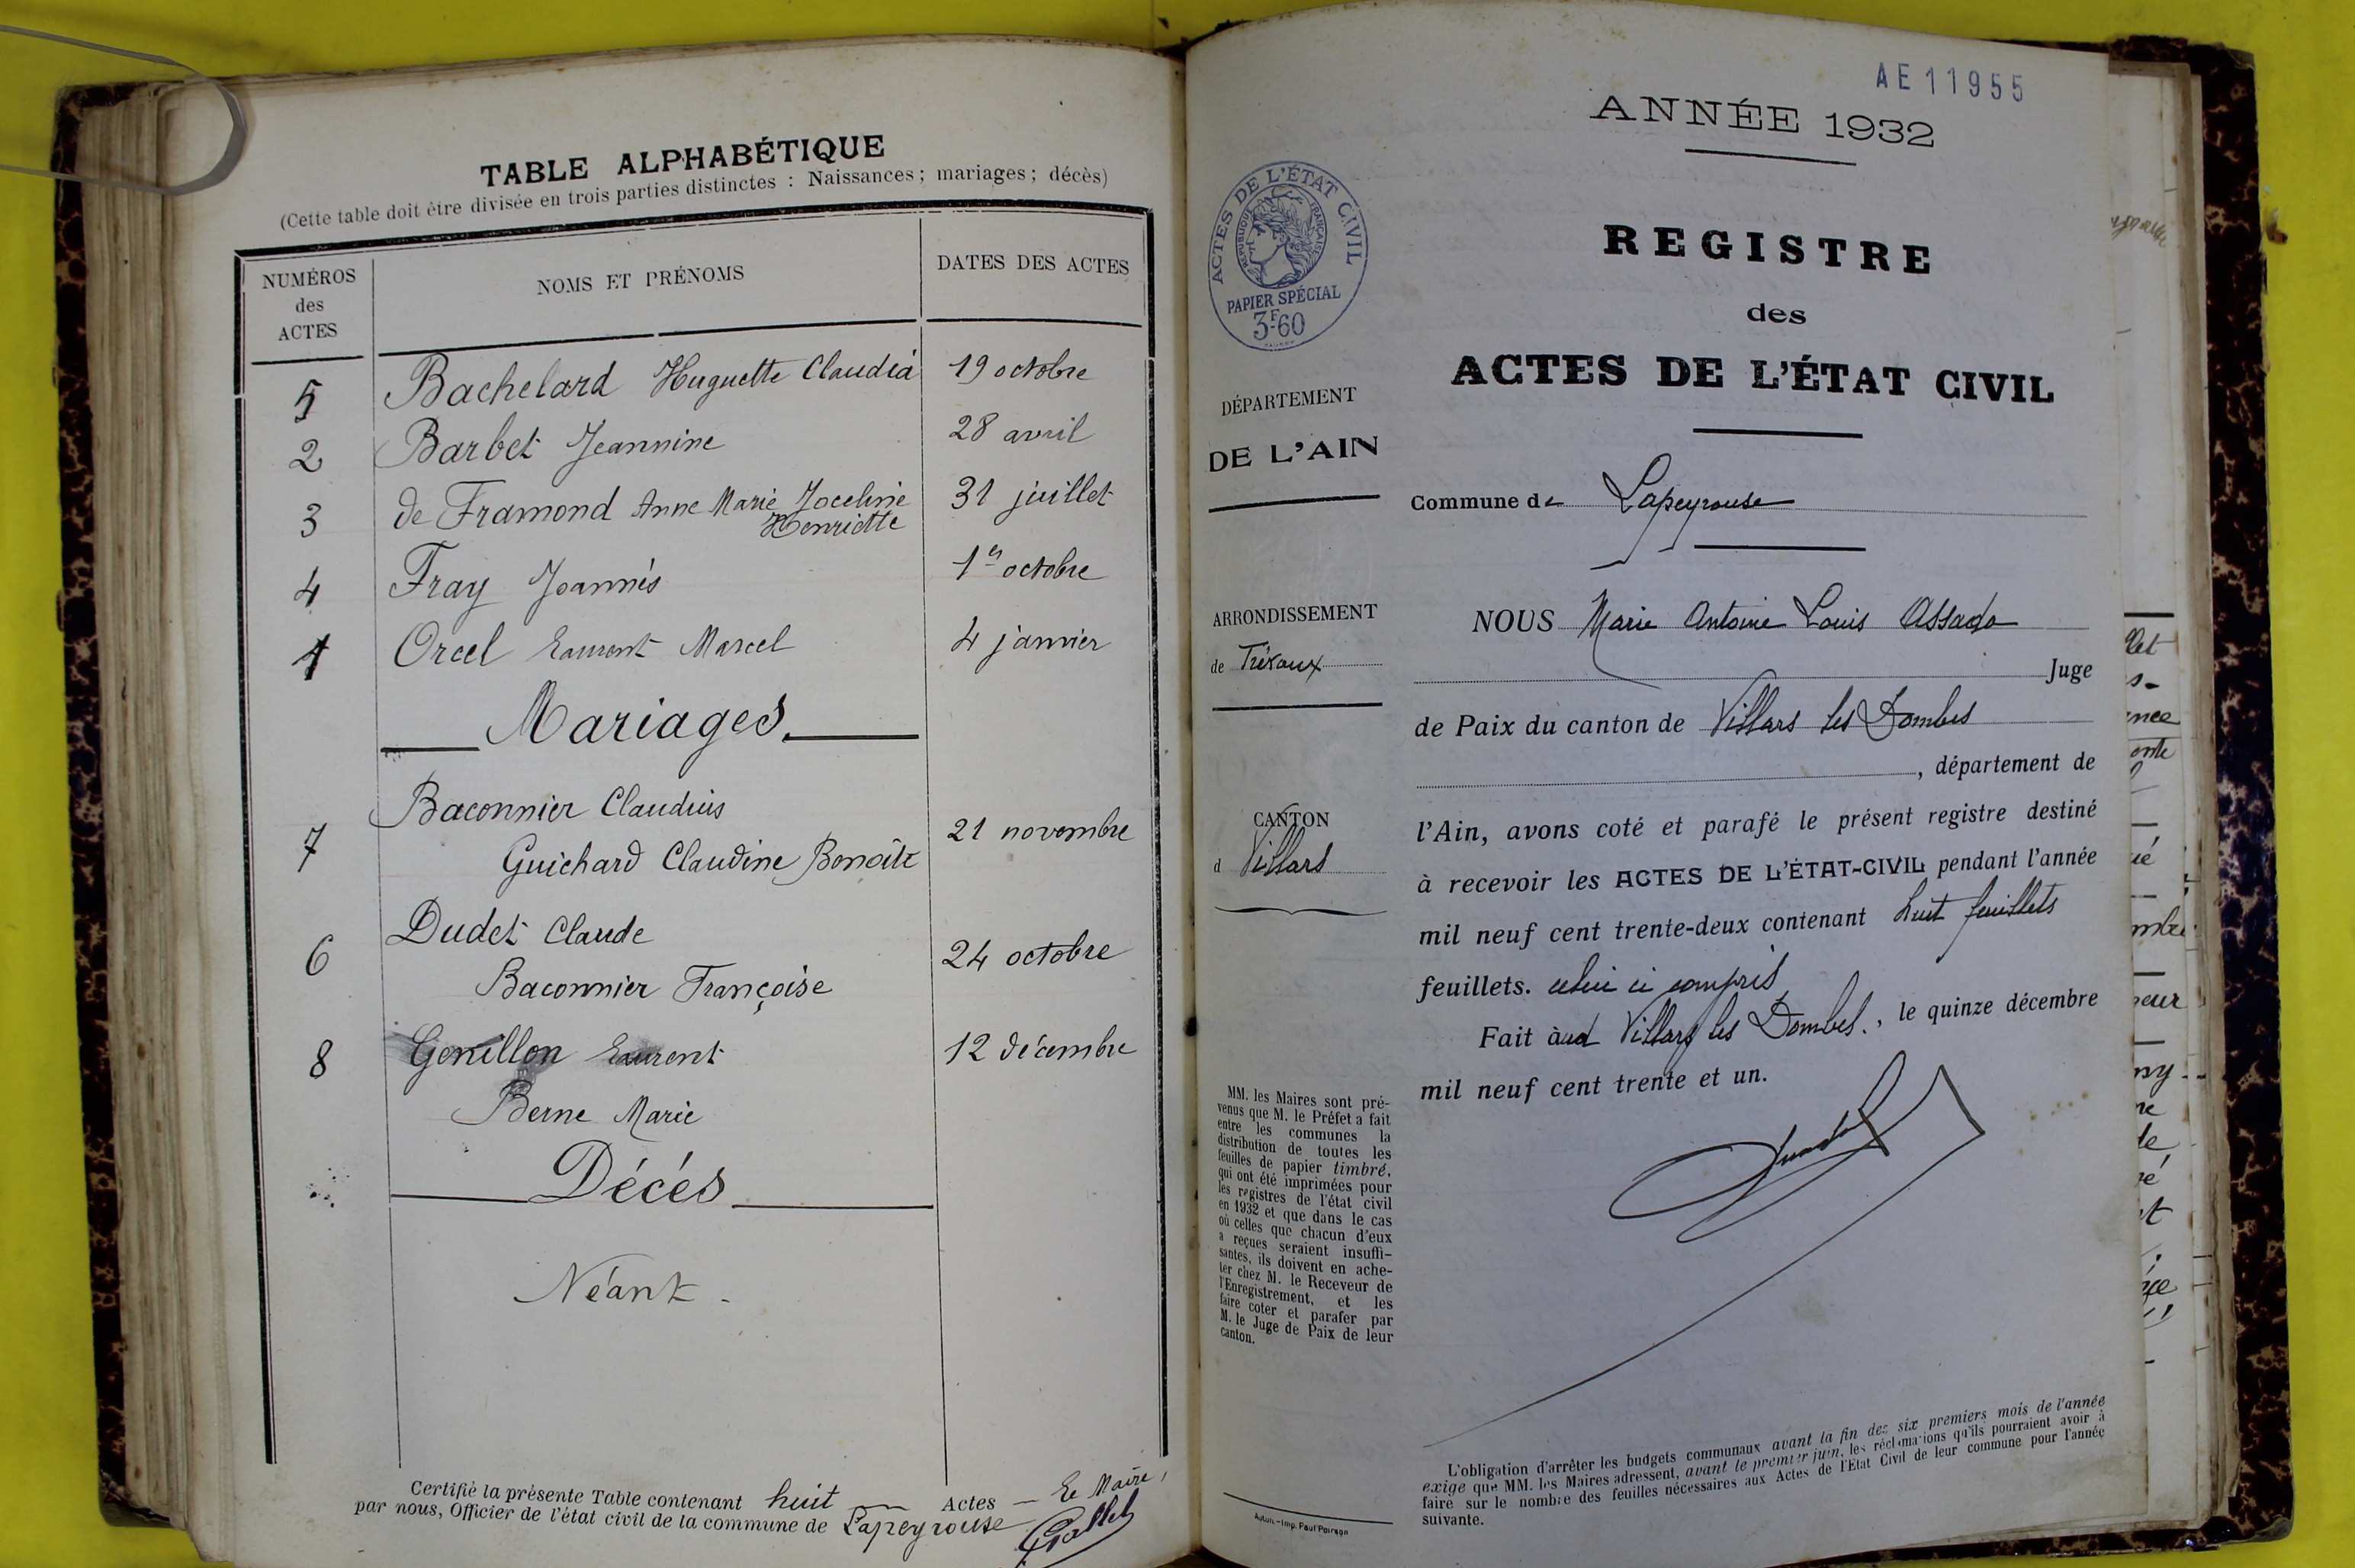 TABLE ALPHABÉTIQUE
(Cette table doit être divisée en trois parties distinctes : Naissances ; mariages ; décès)
NUMÉROS
des
ACTES
NOMS ET PRÉNOMS
DATES DES ACTES
5 Bachelard Huguette Claudia 19 octobre
2 Barbet Jeannine 28 avril
3 de Framond Anne Marie Joceline 31 juillet
Henriette
4 Fray Joannès 1er octobre
1 Orcel Laurent Marcel 4 janvier
Mariages
Baconnier Claudius
7 21 novembre
Guichard Claudine Benoite
Dudet Claude
6 24 octobre
Baconnier Françoise
8 Genillon Laurent 12 décembre
Berne Marie
Décés
Néant -
Certifié la présente Table contenant huit Actes — Le Maire,
par nous, Officier de l'état civil de la commune de Lapeyrouse
AE 11955
ANNÉE 1932
REGISTRE
des
ACTES DE L'ÉTAT CIVIL
ACTES DE L'ÉTAT CIVIL
RÉPUBLIQUE FRANÇAISE
PAPIER SPÉCIAL
3F60
DÉPARTEMENT
DE L'AIN
ARRONDISSEMENT
de Trévoux
CANTON
d Villars
MM. les Maires sont pré-
venus que M. le Préfet a fait
entre les communes la
distribution de toutes les
feuilles de papier timbré,
qui ont été imprimées pour
les registres de l'état civil
en 1932 et que dans le cas
où celles que chacun d'eux
a reçues seraient insuffi-
santes, ils doivent en ache-
ter chez M. le Receveur de
l'Enregistrement, et les
faire coter et parafer par
M. le Juge de Paix de leur
canton.
Autun.-Imp. Paul Poirson
Commune de Lapeyrouse
NOUS Marie Antoine Louis
Juge
de Paix du canton de Villars les Dombes
, département de
l'Ain, avons coté et parafé le présent registre destiné
à recevoir les ACTES DE L'ÉTAT-CIVIL pendant l'année
mil neuf cent trente-deux contenant huit feuillets
feuillets. celui ci compris
Fait à Villars les Dombes, le quinze décembre
mil neuf cent trente et un.
L'obligation d'arrêter les budgets communaux avant la fin des six premiers mois de l'année
exige que MM. les Maires adressent, avant le premier juin, les réclamations qu'ils pourraient avoir à
faire sur le nombre des feuilles nécessaires aux Actes de l'Etat Civil de leur commune pour l'année
suivante.